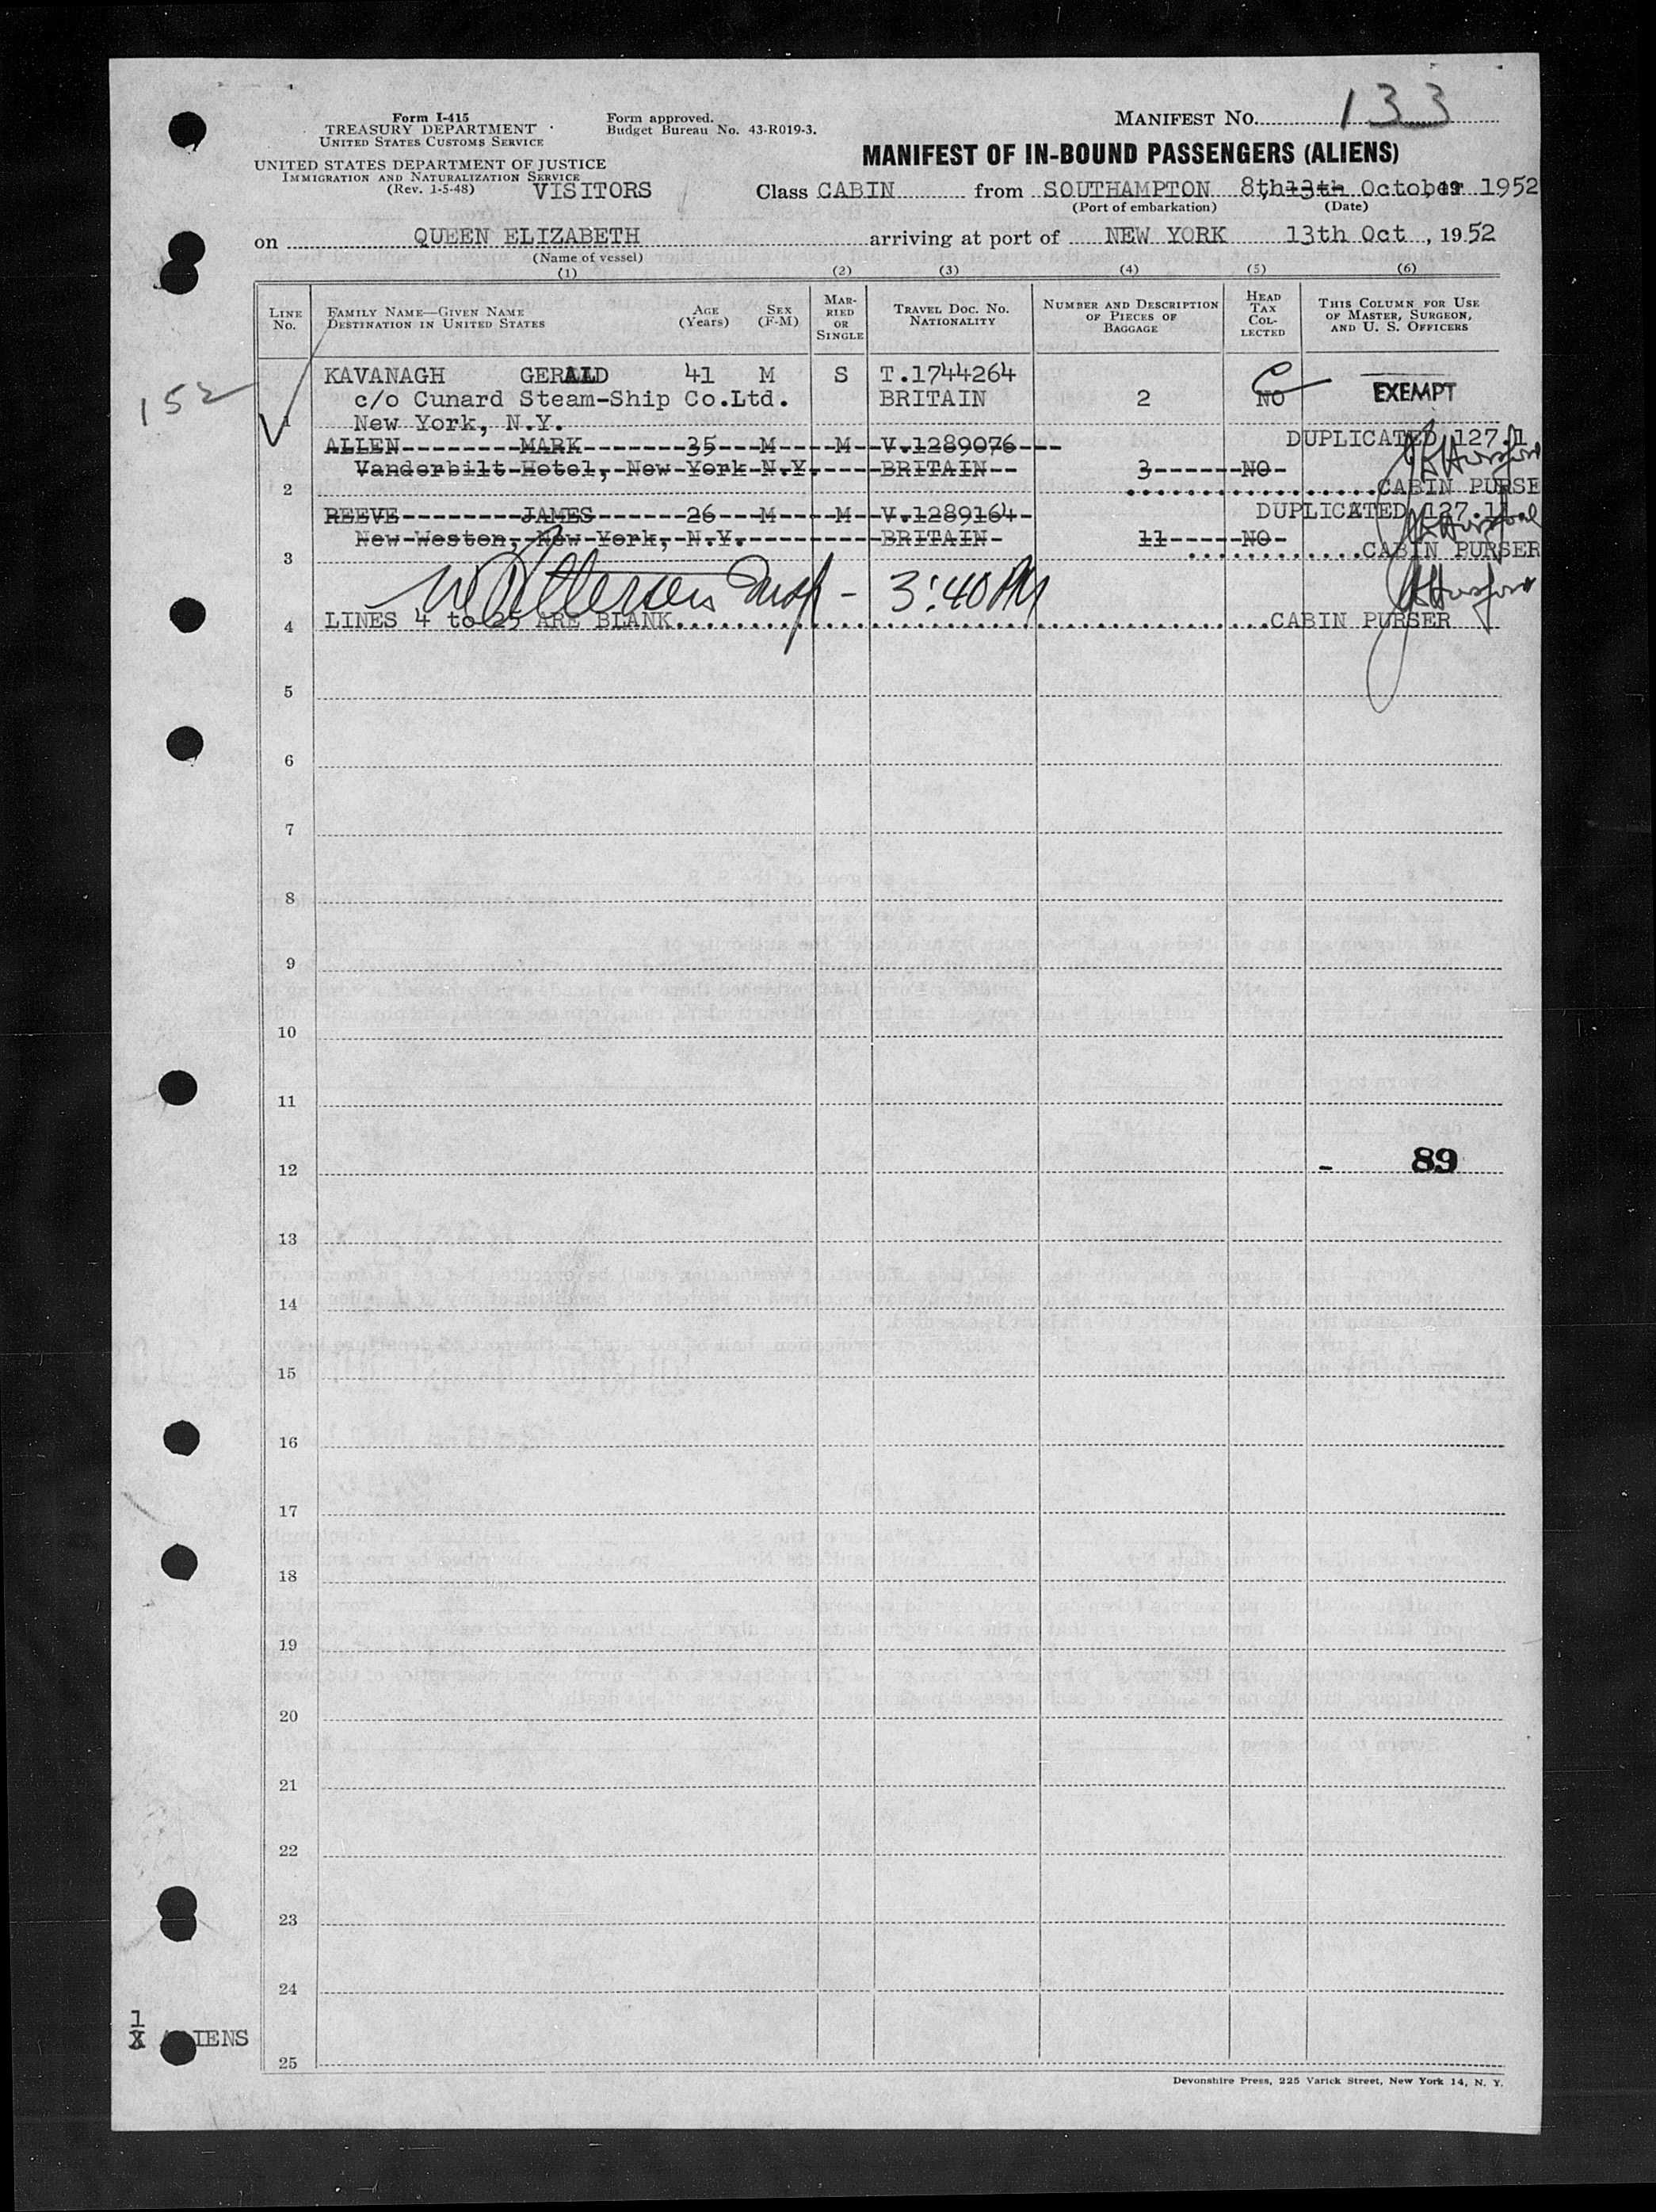 Form I-415
TREASURY DEPARTMENT
UNITED STATES CUSTOMS SERVICE
UNITED STATES DEPARTMENT OF JUSTICE
IMMIGRATION AND NATURALIZATION SERVICE
(Rev. 1-5-48) VISITORS
Form approved.
Budget Bureau No. 43-R019-3.
MANIFEST No. 133
MANIFEST OF IN-BOUND PASSENGERS (ALIENS)
Class CABIN from SOUTHAMPTON 8th 13th October, 19 1952
(Port of embarkation) (Date)
on QUEEN ELIZABETH arriving at port of NEW YORK 13th Oct, 1952
(Name of vessel)
(1) (2) (3) (4) (5) (6)
LINE No. FAMILY NAME—GIVEN NAME DESTINATION IN UNITED STATES AGE (Years) SEX (F-M) MARRIED OR SINGLE TRAVEL DOC. NO. NATIONALITY NUMBER AND DESCRIPTION OF PIECES OF BAGGAGE HEAD TAX COLLECTED THIS COLUMN FOR USE OF MASTER, SURGEON, AND U. S. OFFICERS
152
KAVANAGH GERALD 41 M S T.1744264
c/o Cunard Steam-Ship Co.Ltd. BRITAIN 2 NO EXEMPT
1 New York, N.Y.
ALLEN MARK 35 M M V.1289076 DUPLICATED 127.1
Vanderbilt Hotel, New York N.Y. BRITAIN 3 NO
2 CABIN PURSE
REEVE JAMES 26 M M V.1289164 DUPLICATED 127.11
New Weston, New York, N.Y. BRITAIN 11 NO
3 CABIN PURSER
3:40 PM
4 LINES 4 to 25 ARE BLANK CABIN PURSER
5
6
7
8
9
10
11
12 - 89
13
14
15
16
17
18
19
20
21
22
23
24
1
X IENS
25
Devonshire Press, 225 Varick Street, New York 14, N. Y.